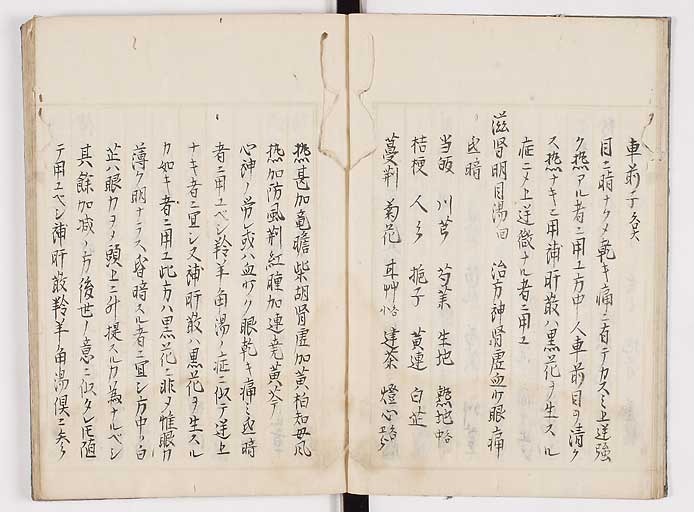 車前子
目ニ時ナクメ乾キ痛ニ有テカスミ上逆強
ク熱アル者ニ用ユ方中ノ人車前目ヲ清ク
ス熱ナキニ用補肝散ハ黒花ヲ生スル
症ニ〆上逆微ナル者ニ用ユ
滋腎明目湯曰 治方神腎虚血少眼痛
昏暗
当皈 川芎 芍薬 生地 熟地
桔梗 人参 梔子 黄連 白芷
蔓荊 菊花 甘艸 建茶 燈心
熱甚加竜膽柴胡腎虚加黄柏知母風
熱加防風荊紅腫加連翹黄芩
心神ノ労シ或ハ血少ク眼乾キ痛ミ昏暗
者ニ用ユベシ羚羊角湯ノ症ニ似テ逆上
ナキ者ニ宜シ又補肝散ハ黒花ヲ生スル
カ如キ者ニ用ユ此方ハ黒花ニ非ヲ惟眼力
薄ク明ナラス昏暗スル者ニ宜シ方中ノ白
芷ハ眼力ヲノ頭上ニ升提スルカ為ナルベシ
其餘加減ノ方後世ノ意ニ似タレ𪜈随
テ用ユベシ補肝散羚羊角湯倶ニ